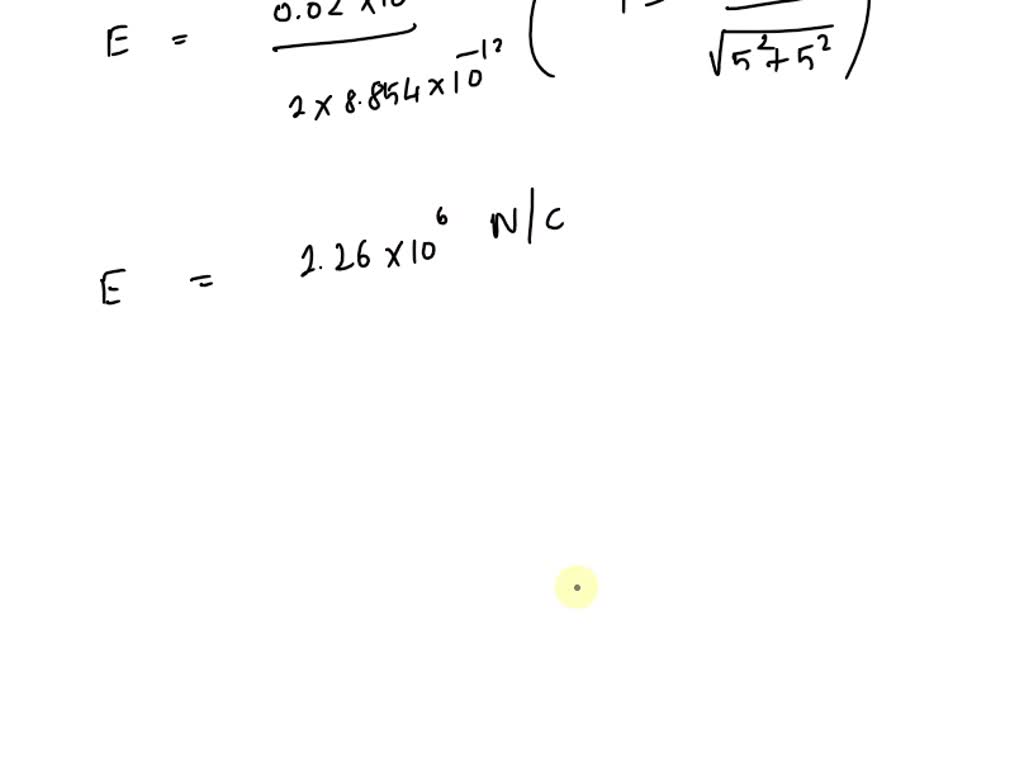 E = 0.02 × 10 / 2 × 8.854 × 10⁻¹² ( 1 − / √5² + 5² )
E = 2.26 × 10⁶ N/C